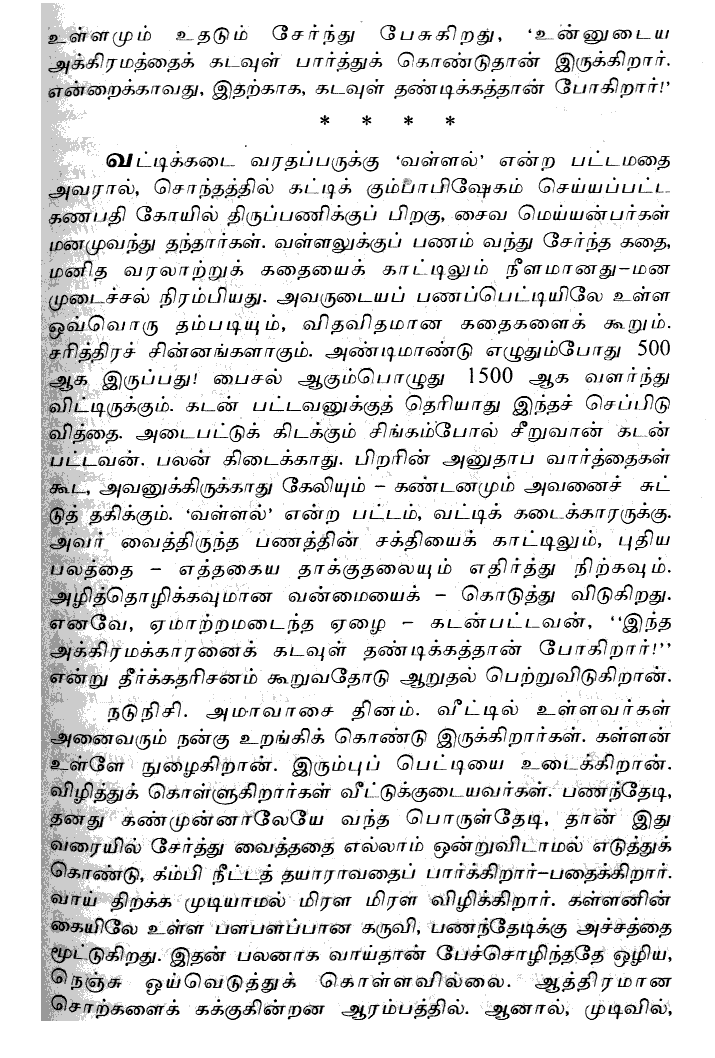 உள்ளமும் உதடும் சேர்ந்து பேசுகிறது, ‘உன்னுடைய
அக்கிரமத்தைக் கடவுள் பார்த்துக் கொண்டுதான் இருக்கிறார்.
என்றைக்காவது, இதற்காக, கடவுள் தண்டிக்கத்தான் போகிறார்!’
* * * *
வட்டிக்கடை வரதப்பருக்கு ‘வள்ளல்’ என்ற பட்டமதை
அவரால், சொந்தத்தில் கட்டிக் கும்பாபிஷேகம் செய்யப்பட்ட
கணபதி கோயில் திருப்பணிக்குப் பிறகு, சைவ மெய்யன்பர்கள்
மனமுவந்து தந்தார்கள். வள்ளலுக்குப் பணம் வந்து சேர்ந்த கதை,
மனித வரலாற்றுக் கதையைக் காட்டிலும் நீளமானது–மன
முடைச்சல் நிரம்பியது. அவருடையப் பணப்பெட்டியிலே உள்ள
ஒவ்வொரு தம்படியும், விதவிதமான கதைகளைக் கூறும்.
சரித்திரச் சின்னங்களாகும். அண்டிமாண்டு எழுதும்போது 500
ஆக இருப்பது! பைசல் ஆகும்பொழுது 1500 ஆக வளர்ந்து
விட்டிருக்கும். கடன் பட்டவனுக்குத் தெரியாது இந்தச் செப்பிடு
வித்தை. அடைபட்டுக் கிடக்கும் சிங்கம்போல் சீறுவான் கடன்
பட்டவன். பலன் கிடைக்காது. பிறரின் அனுதாப வார்த்தைகள்
கூட, அவனுக்கிருக்காது கேலியும் – கண்டனமும் அவனைச் சுட்
டுத் தகிக்கும். ‘வள்ளல்’ என்ற பட்டம், வட்டிக் கடைக்காரருக்கு.
அவர் வைத்திருந்த பணத்தின் சக்தியைக் காட்டிலும், புதிய
பலத்தை – எத்தகைய தாக்குதலையும் எதிர்த்து நிற்கவும்.
அழித்தொழிக்கவுமான வன்மையைக் – கொடுத்து விடுகிறது.
எனவே, ஏமாற்றமடைந்த ஏழை – கடன்பட்டவன், ‘‘இந்த
அக்கிரமக்காரனைக் கடவுள் தண்டிக்கத்தான் போகிறார்!’’
என்று தீர்க்கதரிசனம் கூறுவதோடு ஆறுதல் பெற்றுவிடுகிறான்.
நடுநிசி. அமாவாசை தினம். வீட்டில் உள்ளவர்கள்
அனைவரும் நன்கு உறங்கிக் கொண்டு இருக்கிறார்கள். கள்ளன்
உள்ளே நுழைகிறான். இரும்புப் பெட்டியை உடைக்கிறான்.
விழித்துக் கொள்ளுகிறார்கள் வீட்டுக்குடையவர்கள். பணந்தேடி,
தனது கண்முன்னாலேயே வந்த பொருள்தேடி, தான் இது
வரையில் சேர்த்து வைத்ததை எல்லாம் ஒன்றுவிடாமல் எடுத்துக்
கொண்டு, கீம்பி நீட்டத் தயாராவதைப் பார்க்கிறார்–பதைக்கிறார்.
வாய் திறக்க முடியாமல் மிரள மிரள விழிக்கிறார். கள்ளனின்
கையிலே உள்ள பளபளப்பான கருவி, பணந்தேடிக்கு அச்சத்தை
மூட்டுகிறது. இதன் பலனாக வாய்தான் பேச்சொழிந்ததே ஒழிய,
நெஞ்சு ஒய்வெடுத்துக் கொள்ளவில்லை. ஆத்திரமான
சொற்களைக் கக்குகின்றன ஆரம்பத்தில். ஆனால், முடிவில்,